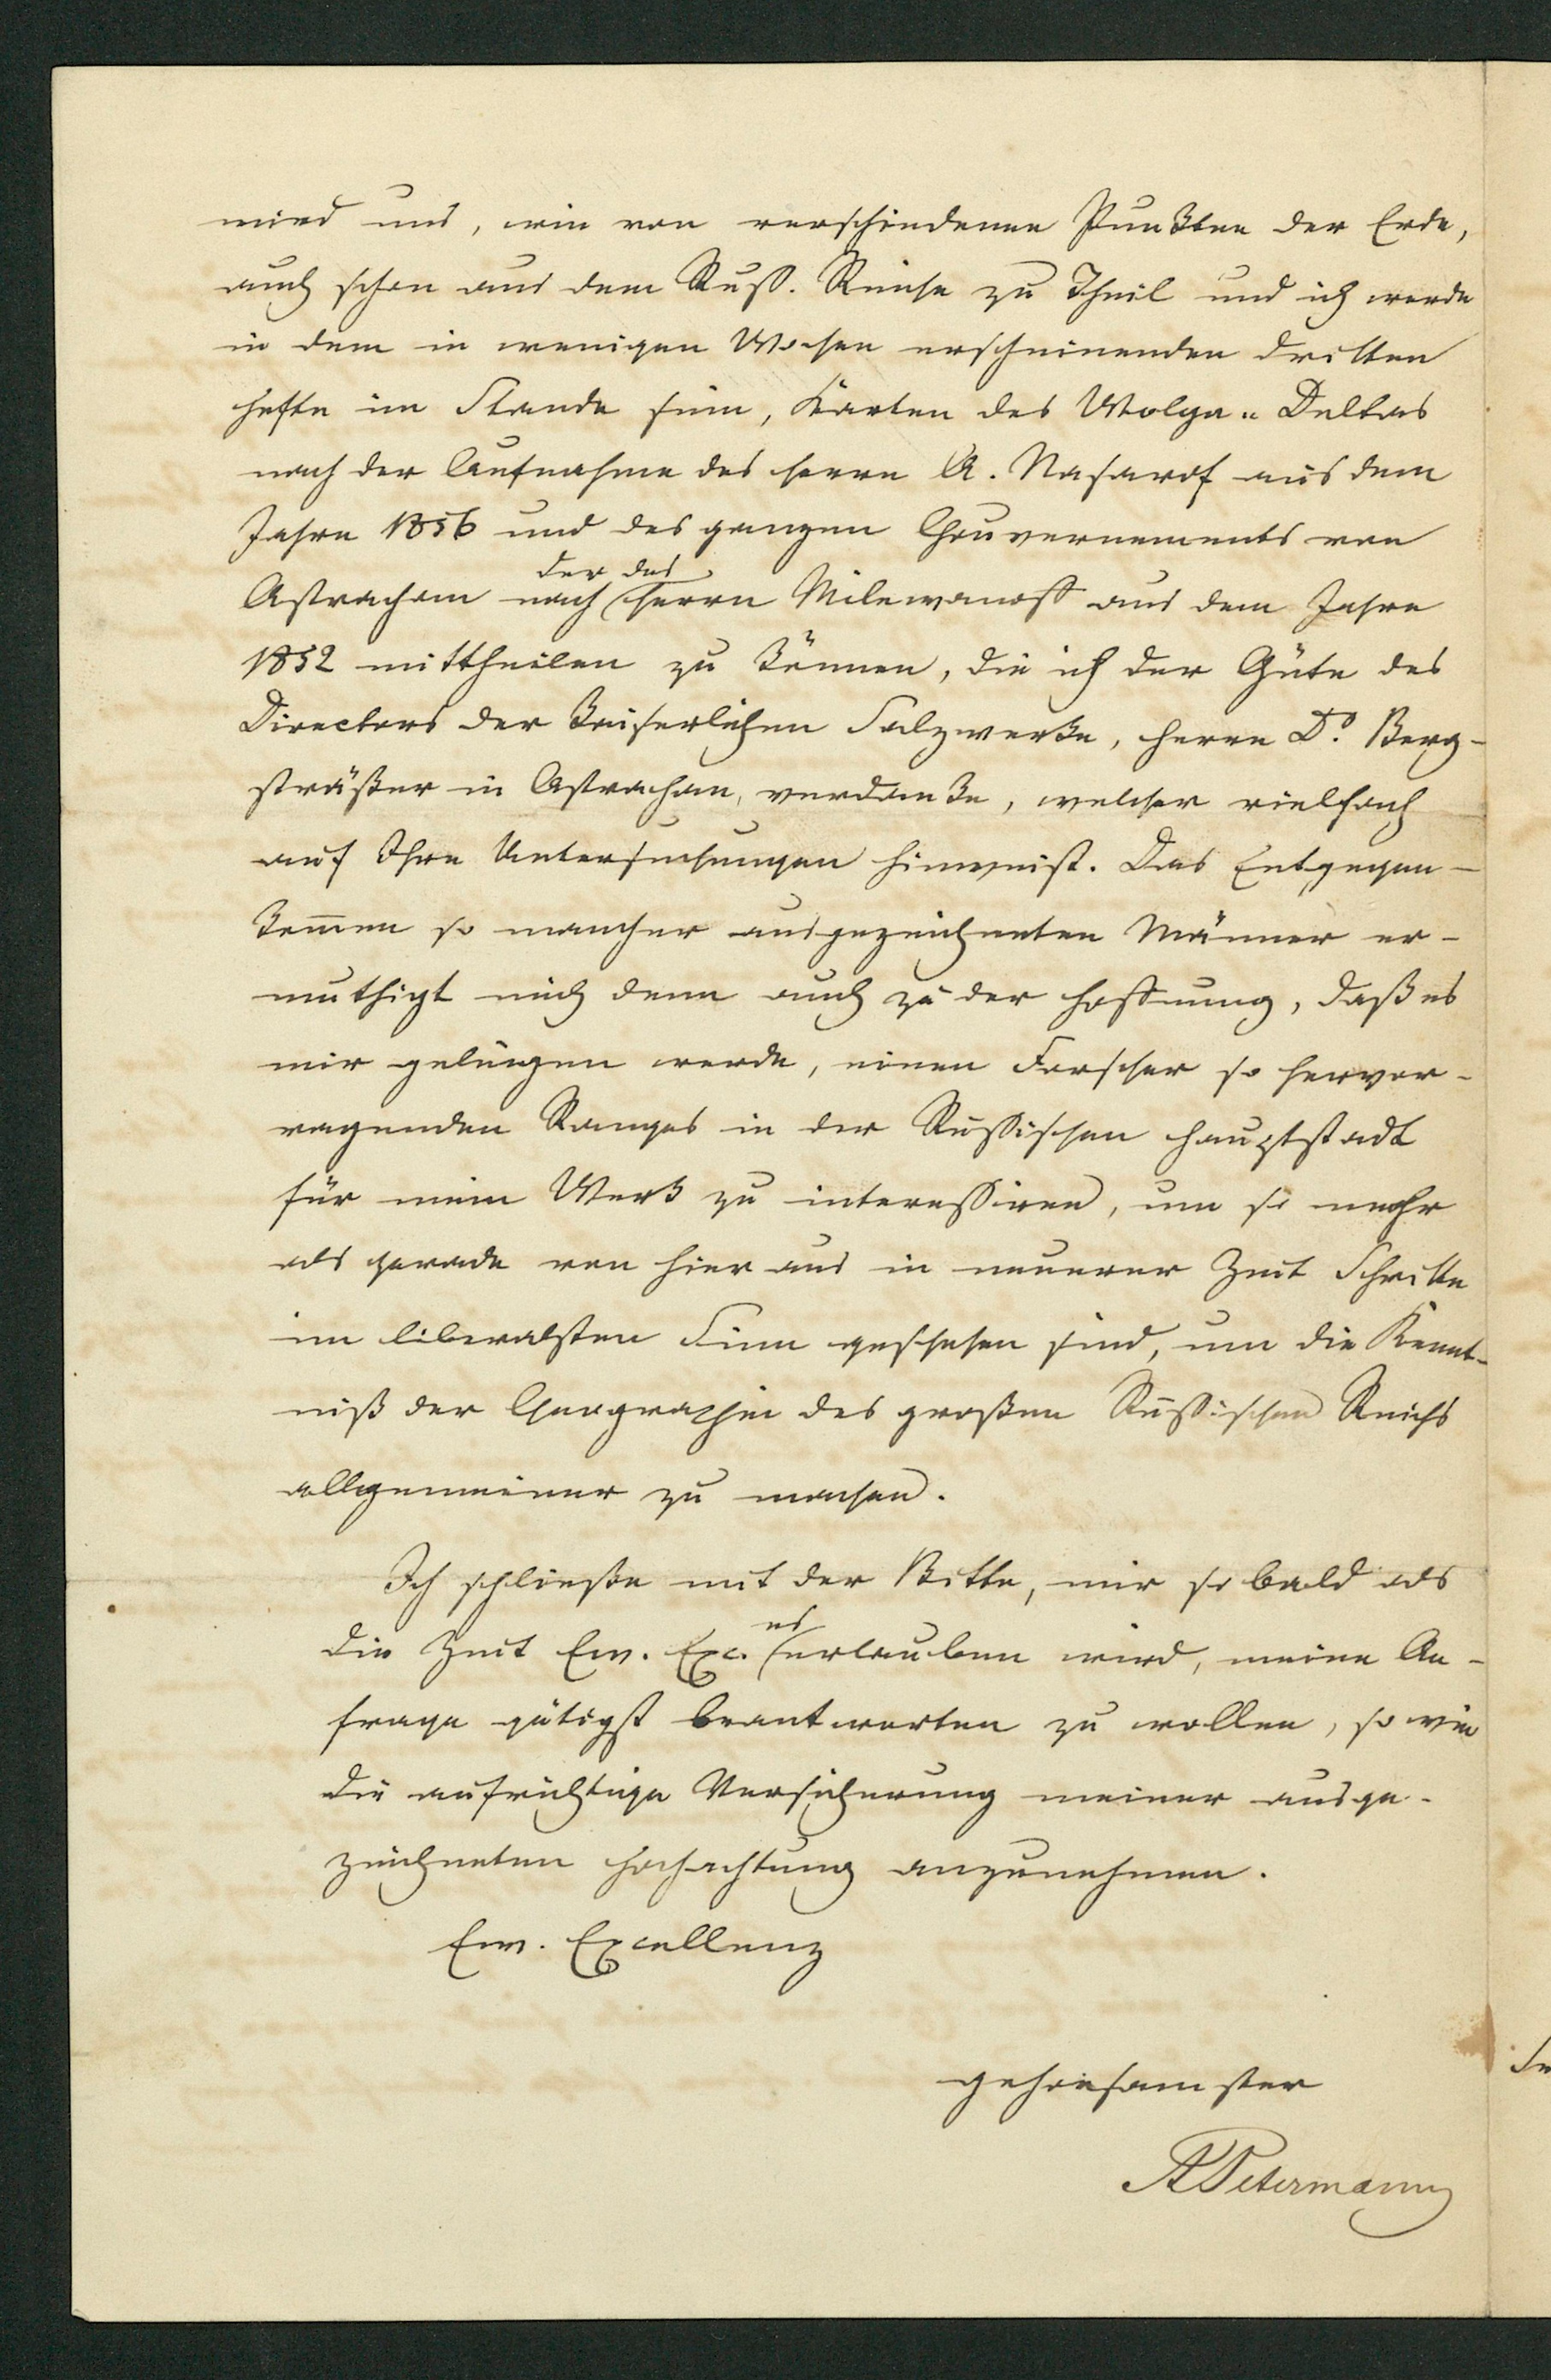 wird uns, wie von verschiedenen Punkten der Erde,
auch schon aus dem Russ. Reiche zu Theil und ich werde
in dem in wenigen Wochen erscheinenden dritten
Hefte im Stande sein, Karten des Wolga-Deltas
nach der Aufnahme des Herrn A. Nasarof aus dem
Jahre 1856 und des ganzen Gouvernements von
der des
Astrachan nach Herrn Milewanoff aus dem Jahre
1852 mittheilen zu können, die ich der Güte des
Directors der Kaiserlichen Salzwerke, Herrn Dr. Berg-
sträßer in Astrachan, verdanke, welcher vielfach
auf Ihre Untersuchungen hinweist. Das Entgegen-
kommen so mancher ausgezeichneten Männer er-
muthigt mich denn auch zu der Hoffnung, daß es
mir gelingen werde, einen Forscher so hervor-
ragenden Ranges in der Russischen Hauptstadt
für mein Werk zu interessiren, um so mehr
als gerade von hier aus in neuerer Zeit Schritte
im liberalsten Sinn geschehen sind, um die Kennt-
niß der Geographie des großen Russischen Reichs
allgemeiner zu machen.
Ich schließe mit der Bitte, mir so bald als
es
die Zeit Ew. Exc. erlauben wird, meine An-
frage gütigst beantworten zu wollen, so wie
die aufrichtige Versicherung meiner ausge-
zeichneten Hochachtung anzunehmen.
Ew. Excellenz
gehorsamster
A Petermann